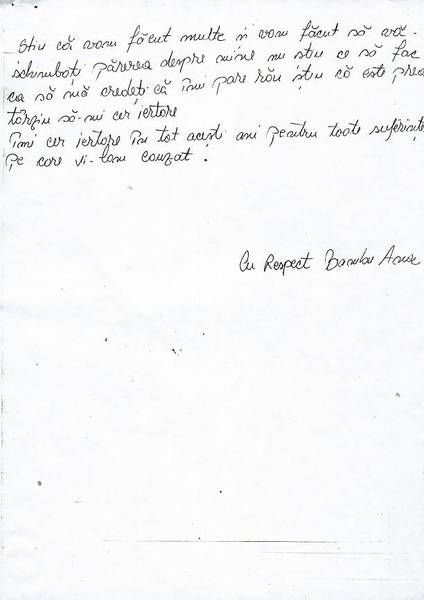 Știu că vam făcut multe și vam făcut să vă-
schimbați părerea despre mine nu știu ce să fac
ca să mă credeți că îmi pare rău știu că este prea
târziu să-mi cer iertare
îmi cer iertare în tot acești ani pentru toate suferințe
pe care vi-leam cauzat.
Cu Respect